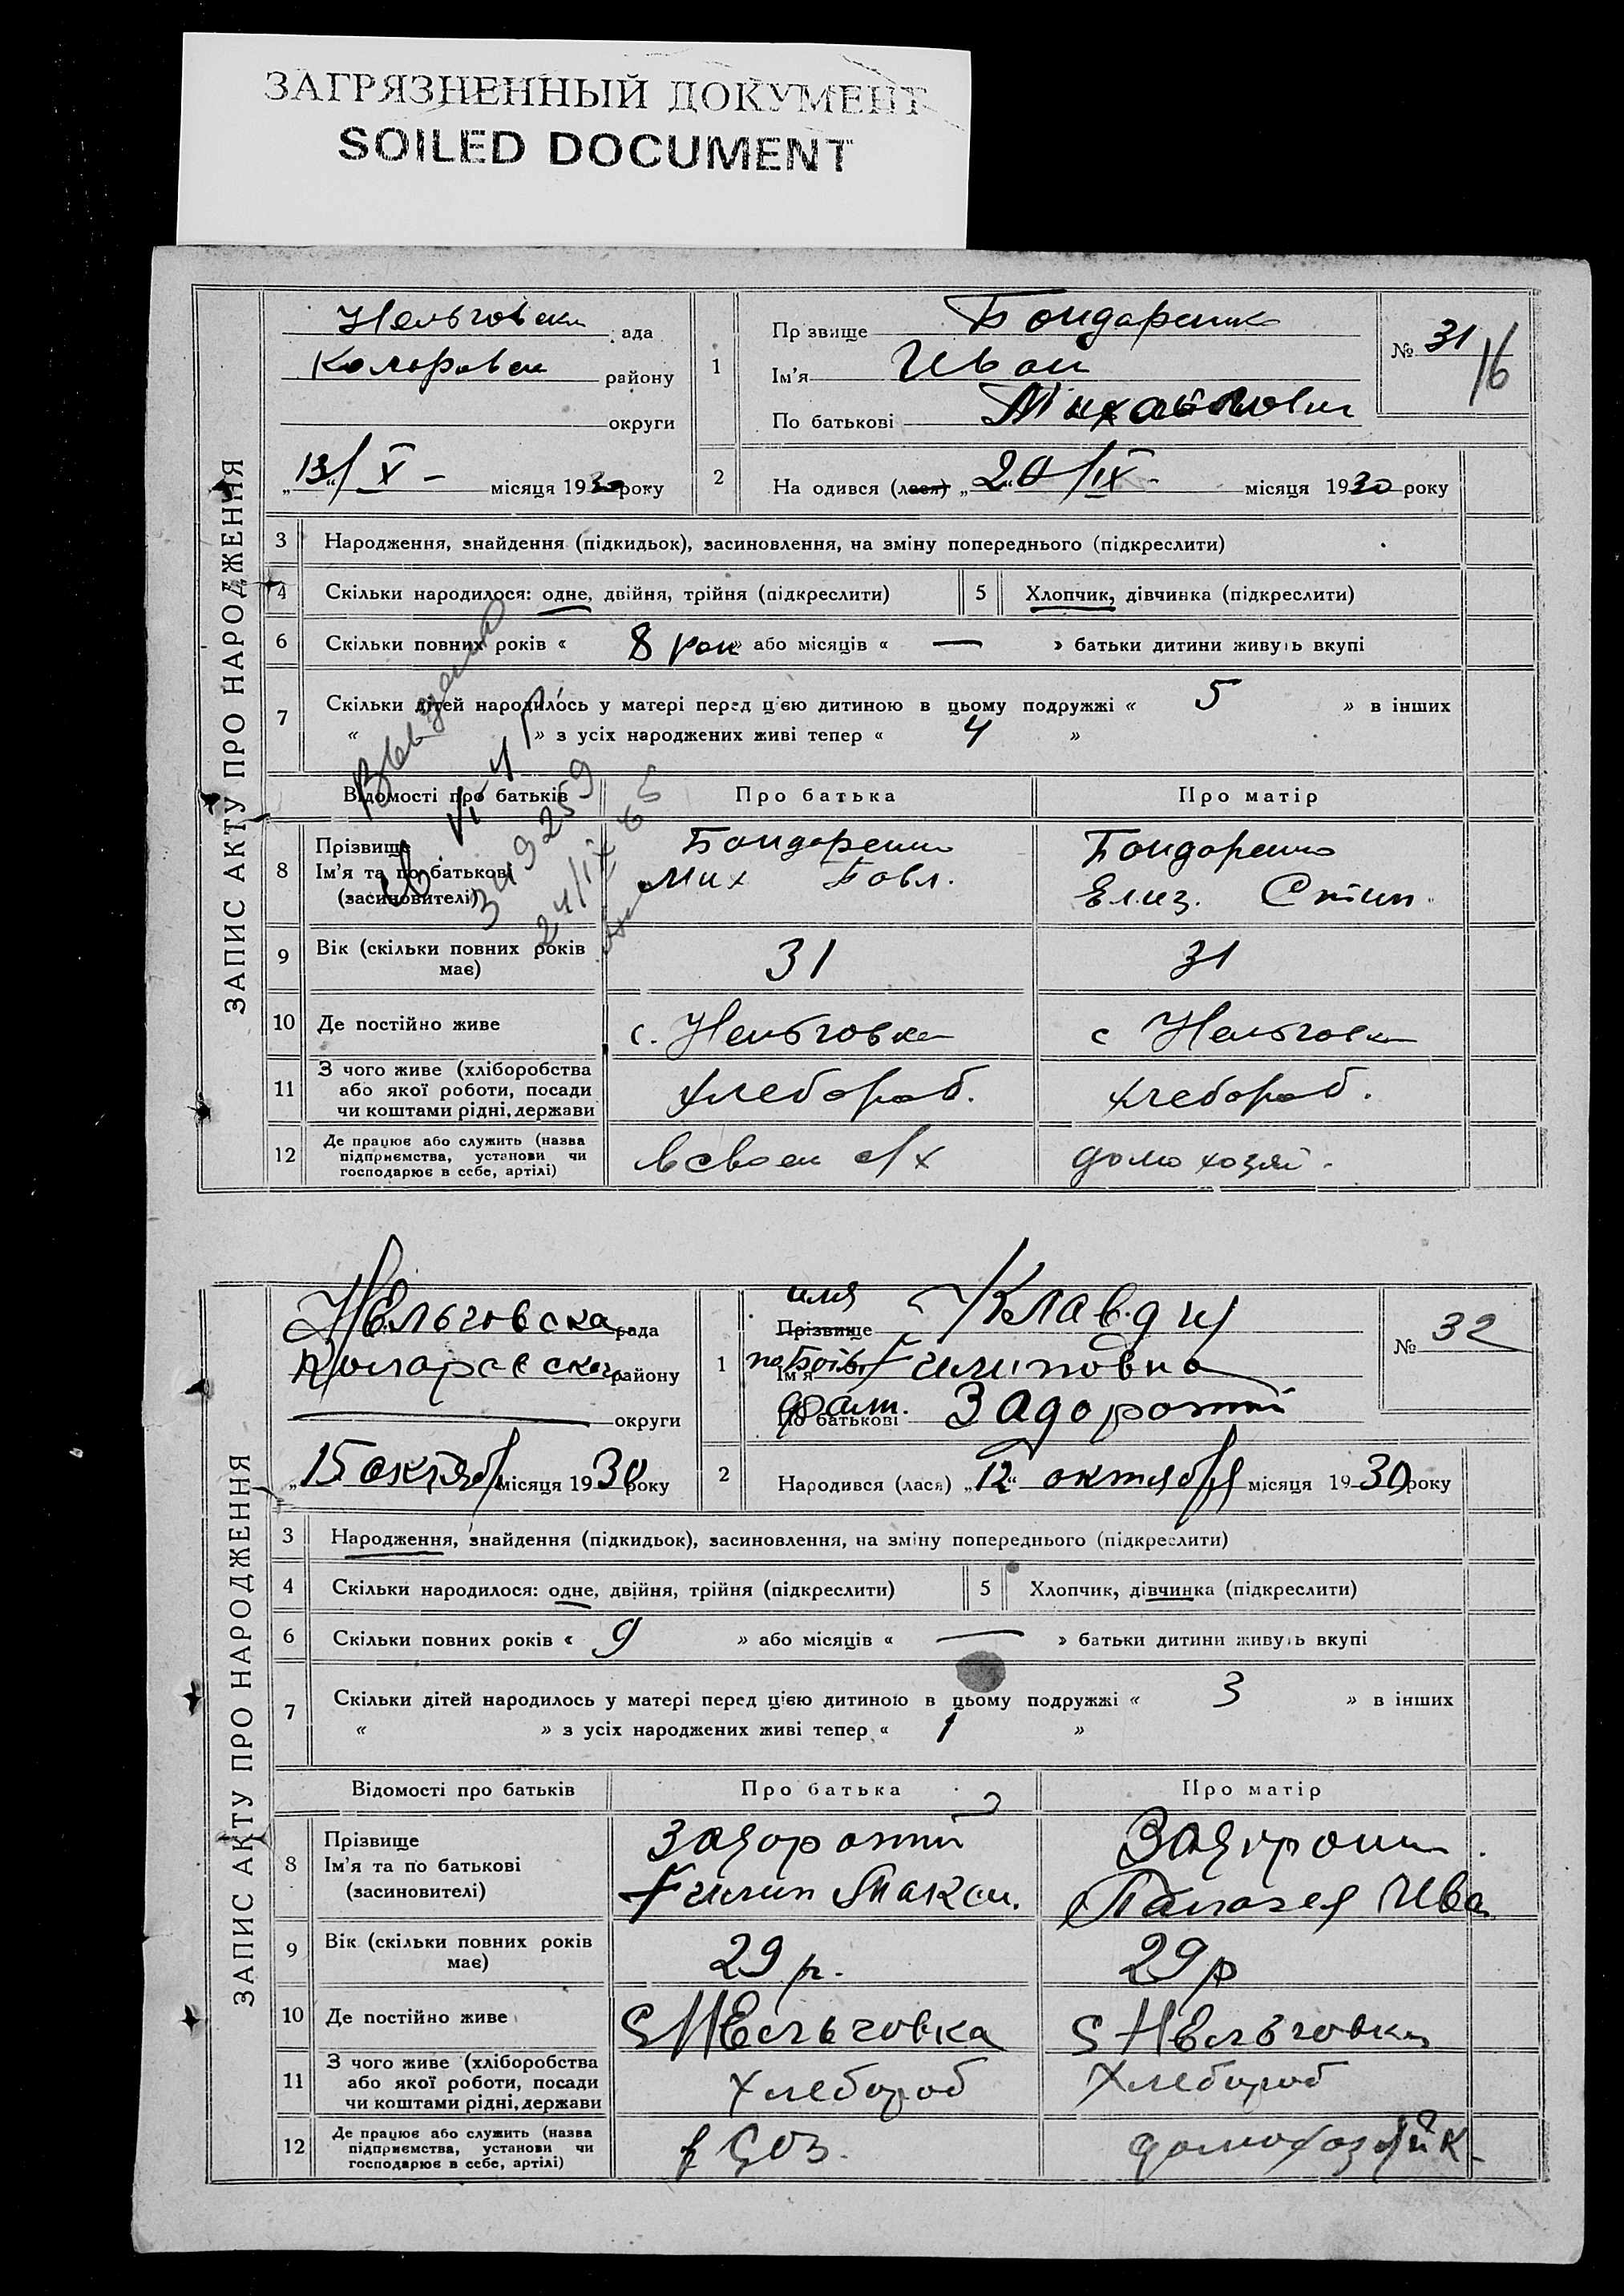 ЗАГРЯЗНЕННЫЙ ДОКУМЕНТ
SOILED DOCUMENT
ЗАПИС АКТУ ПРО НАРОДЖЕННЯ
Нельговск ада
району
округи
„13“/X - місяця 1930 року
1
Пр звище Бондаренко
Ім'я Иван
По батькові Михайлович
№ 31
16
2 На одився (лася) „20“/IX - місяця 1930 року
3 Народження, знайдення (підкидьок), засиновлення, на зміну попереднього (підкреслити)
4 Скільки народилося: одне, двійня, трійня (підкреслити)
5 Хлопчик, дівчинка (підкреслити)
6 Скільки повних років « 8 рок » або місяців « — » батьки дитини живуть вкупі
7 Скільки дітей народилось у матері перед цією дитиною в цьому подружжі « 5 » в інших
« » з усіх народжених живі тепер « 4 »
24/IX 65
Відомості про батьків
Про батька
Про матір
8 Прізвище
Ім'я та по батькові
(засиновителі)
Бондаренко
Мих Павл.
Бондаренко
Елиз. Степ.
9 Вік (скільки повних років
має)
31
31
10 Де постійно живе
с. Нельговка
с Нельговка
11 З чого живе (хліборобства
або якої роботи, посади
чи коштами рідні, держави
хлебороб.
хлебороб.
12 Де працює або служить (назва
підприємства, установи чи
господарює в себе, артілі)
в своем с/х
домохозяй.
ЗАПИС АКТУ ПРО НАРОДЖЕННЯ
Нельговска рада
району
округи
„15 октяб місяця 1930 року
1
имя
Прізвище Клавдия
Ім'я Филиповна
фам.
По батькові Задорожній
№ 32
2 Народився (лася) „12“ октября місяця 1930 року
3 Народження, знайдення (підкидьок), засиновлення, на зміну попереднього (підкреслити)
4 Скільки народилося: одне, двійня, трійня (підкреслити)
5 Хлопчик, дівчинка (підкреслити)
6 Скільки повних років « 9 » або місяців « — » батьки дитини живуть вкупі
7 Скільки дітей народилось у матері перед цією дитиною в цьому подружжі « 3 » в інших
« » з усіх народжених живі тепер « 1 »
Відомості про батьків
Про батька
Про матір
8 Прізвище
Ім'я та по батькові
(засиновителі)
Задорожній
Филип Макси.
Задорожн.
Палагея Ива
9 Вік (скільки повних років
має)
29 р.
29 р
10 Де постійно живе
S Нельговка
S Нельговка
11 З чого живе (хліборобства
або якої роботи, посади
чи коштами рідні, держави
Хлебороб
Хлебороб
12 Де працює або служить (назва
підприємства, установи чи
господарює в себе, артілі)
домохозяйк